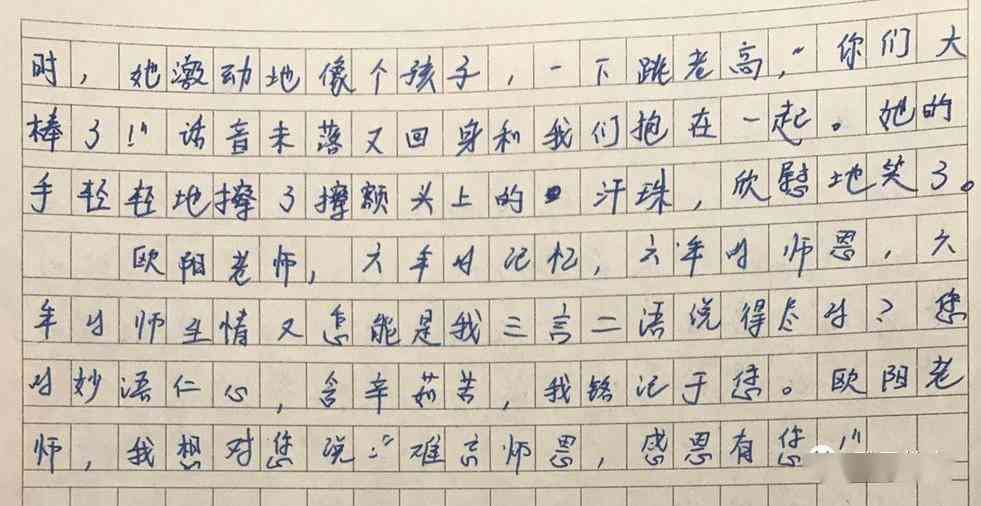 时，她激动地像个孩子，一下跳老高，“你们大
棒了！”话音未落又回身和我们抱在一起。她的
手轻轻地擦了擦额头上的汗珠，欣慰地笑了。
欧阳老师，六年的记忆，六年的师恩，六
年的师生情又怎能是我三言二语说得尽的？您
的妙语仁心，含辛茹苦，我铭记于心。欧阳老
师，我想对您说：“难言师恩，感恩有您！”